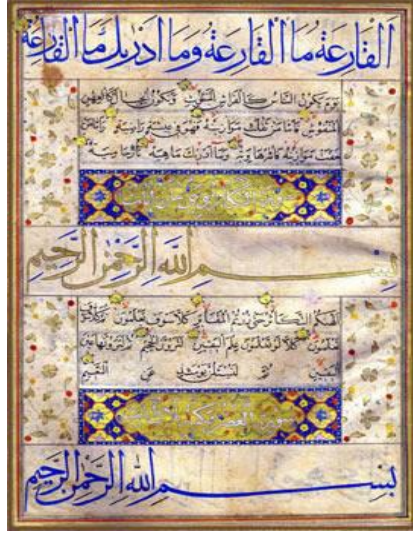 القَارِعَةُ مَا القَارِعَةُ وَمَا اَدْرٰيكَ مَا القَارِعَةُ
يَوْمَ يَكُونُ النَّاسُ كَالفَرَاشِ المَبْثُوثِ وَتَكُونُ الجِبَالُ كَالعِهْنِ
المَنْفُوشِ فَاَمَّا مَنْ ثَقُلَتْ مَوَازِينُهُ فَهُوَ فِي عِيشَةٍ رَاضِيَةٍ وَاَمَّا مَنْ
خَفَّتْ مَوَازِينُهُ فَاُمُّهُ هَاوِيَةٌ وَمَا اَدْرٰيكَ مَاهِيَهْ نَارٌ حَامِيَةٌ
سورة التكاثر
بِسْمِ اللهِ الرَّحْمٰنِ الرَّحِيمِ
اَلْهٰيكُمُ التَّكَاثُرُ حَتّٰى زُرْتُمُ المَقَابِرَ كَلَّا سَوْفَ تَعْلَمُونَ ثُمَّ كَلَّا سَوْفَ
تَعْلَمُونَ كَلَّا لَوْ تَعْلَمُونَ عِلْمَ اليَقِينِ لَتَرَوُنَّ الجَحِيمَ ثُمَّ لَتَرَوُنَّهَا عَيْنَ
اليَقِينِ ثُمَّ لَتُسْئَلُنَّ يَوْمَئِذٍ عَنِ النَّعِيمِ
سورة العصر
بِسْمِ اللهِ الرَّحْمٰنِ الرَّحِيمِ